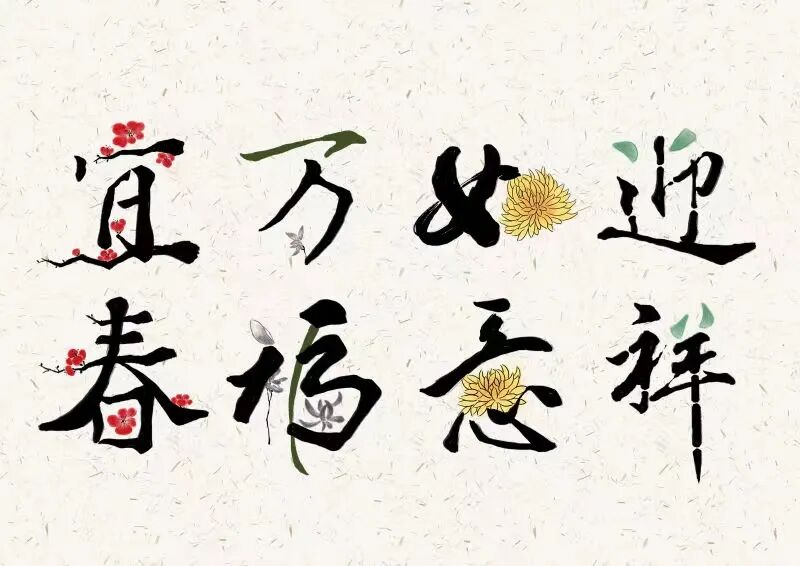 宜春
万福
如意
迎祥